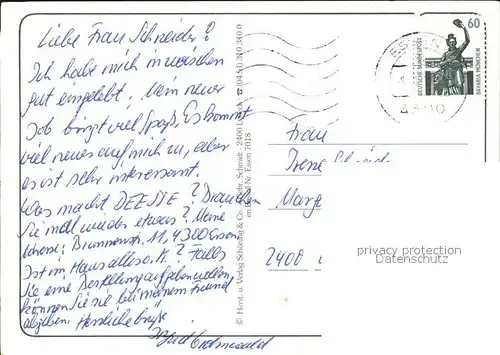 Liebe Frau Schneider?
Ich habe mich inzwischen
gut eingelebt. Mein neuer
Job bringt viel Spaß. Es kommt
viel neues auf mich zu, aber
es ist sehr interessant.
Was macht DEESIE? Brauchen
Sie mal wieder etwas? Meine
Adresse: Brunnenstr. 11, 4300 Essen
Ist im Haus alles o.K.? Falls
Sie eine Bestellung aufgeben wollen,
können Sie sie bei meinem Freund
abgeben. Herzliche Grüße
© Herst. u. Verlag Schöning & Co. + Gebr. Schmidt · 2400 Lübeck
Essen 7018
60
DEUTSCHE BUNDESPOST
BAVARIA MÜNCHEN
Frau
Irene
2408
privacy protection
Datenschutz